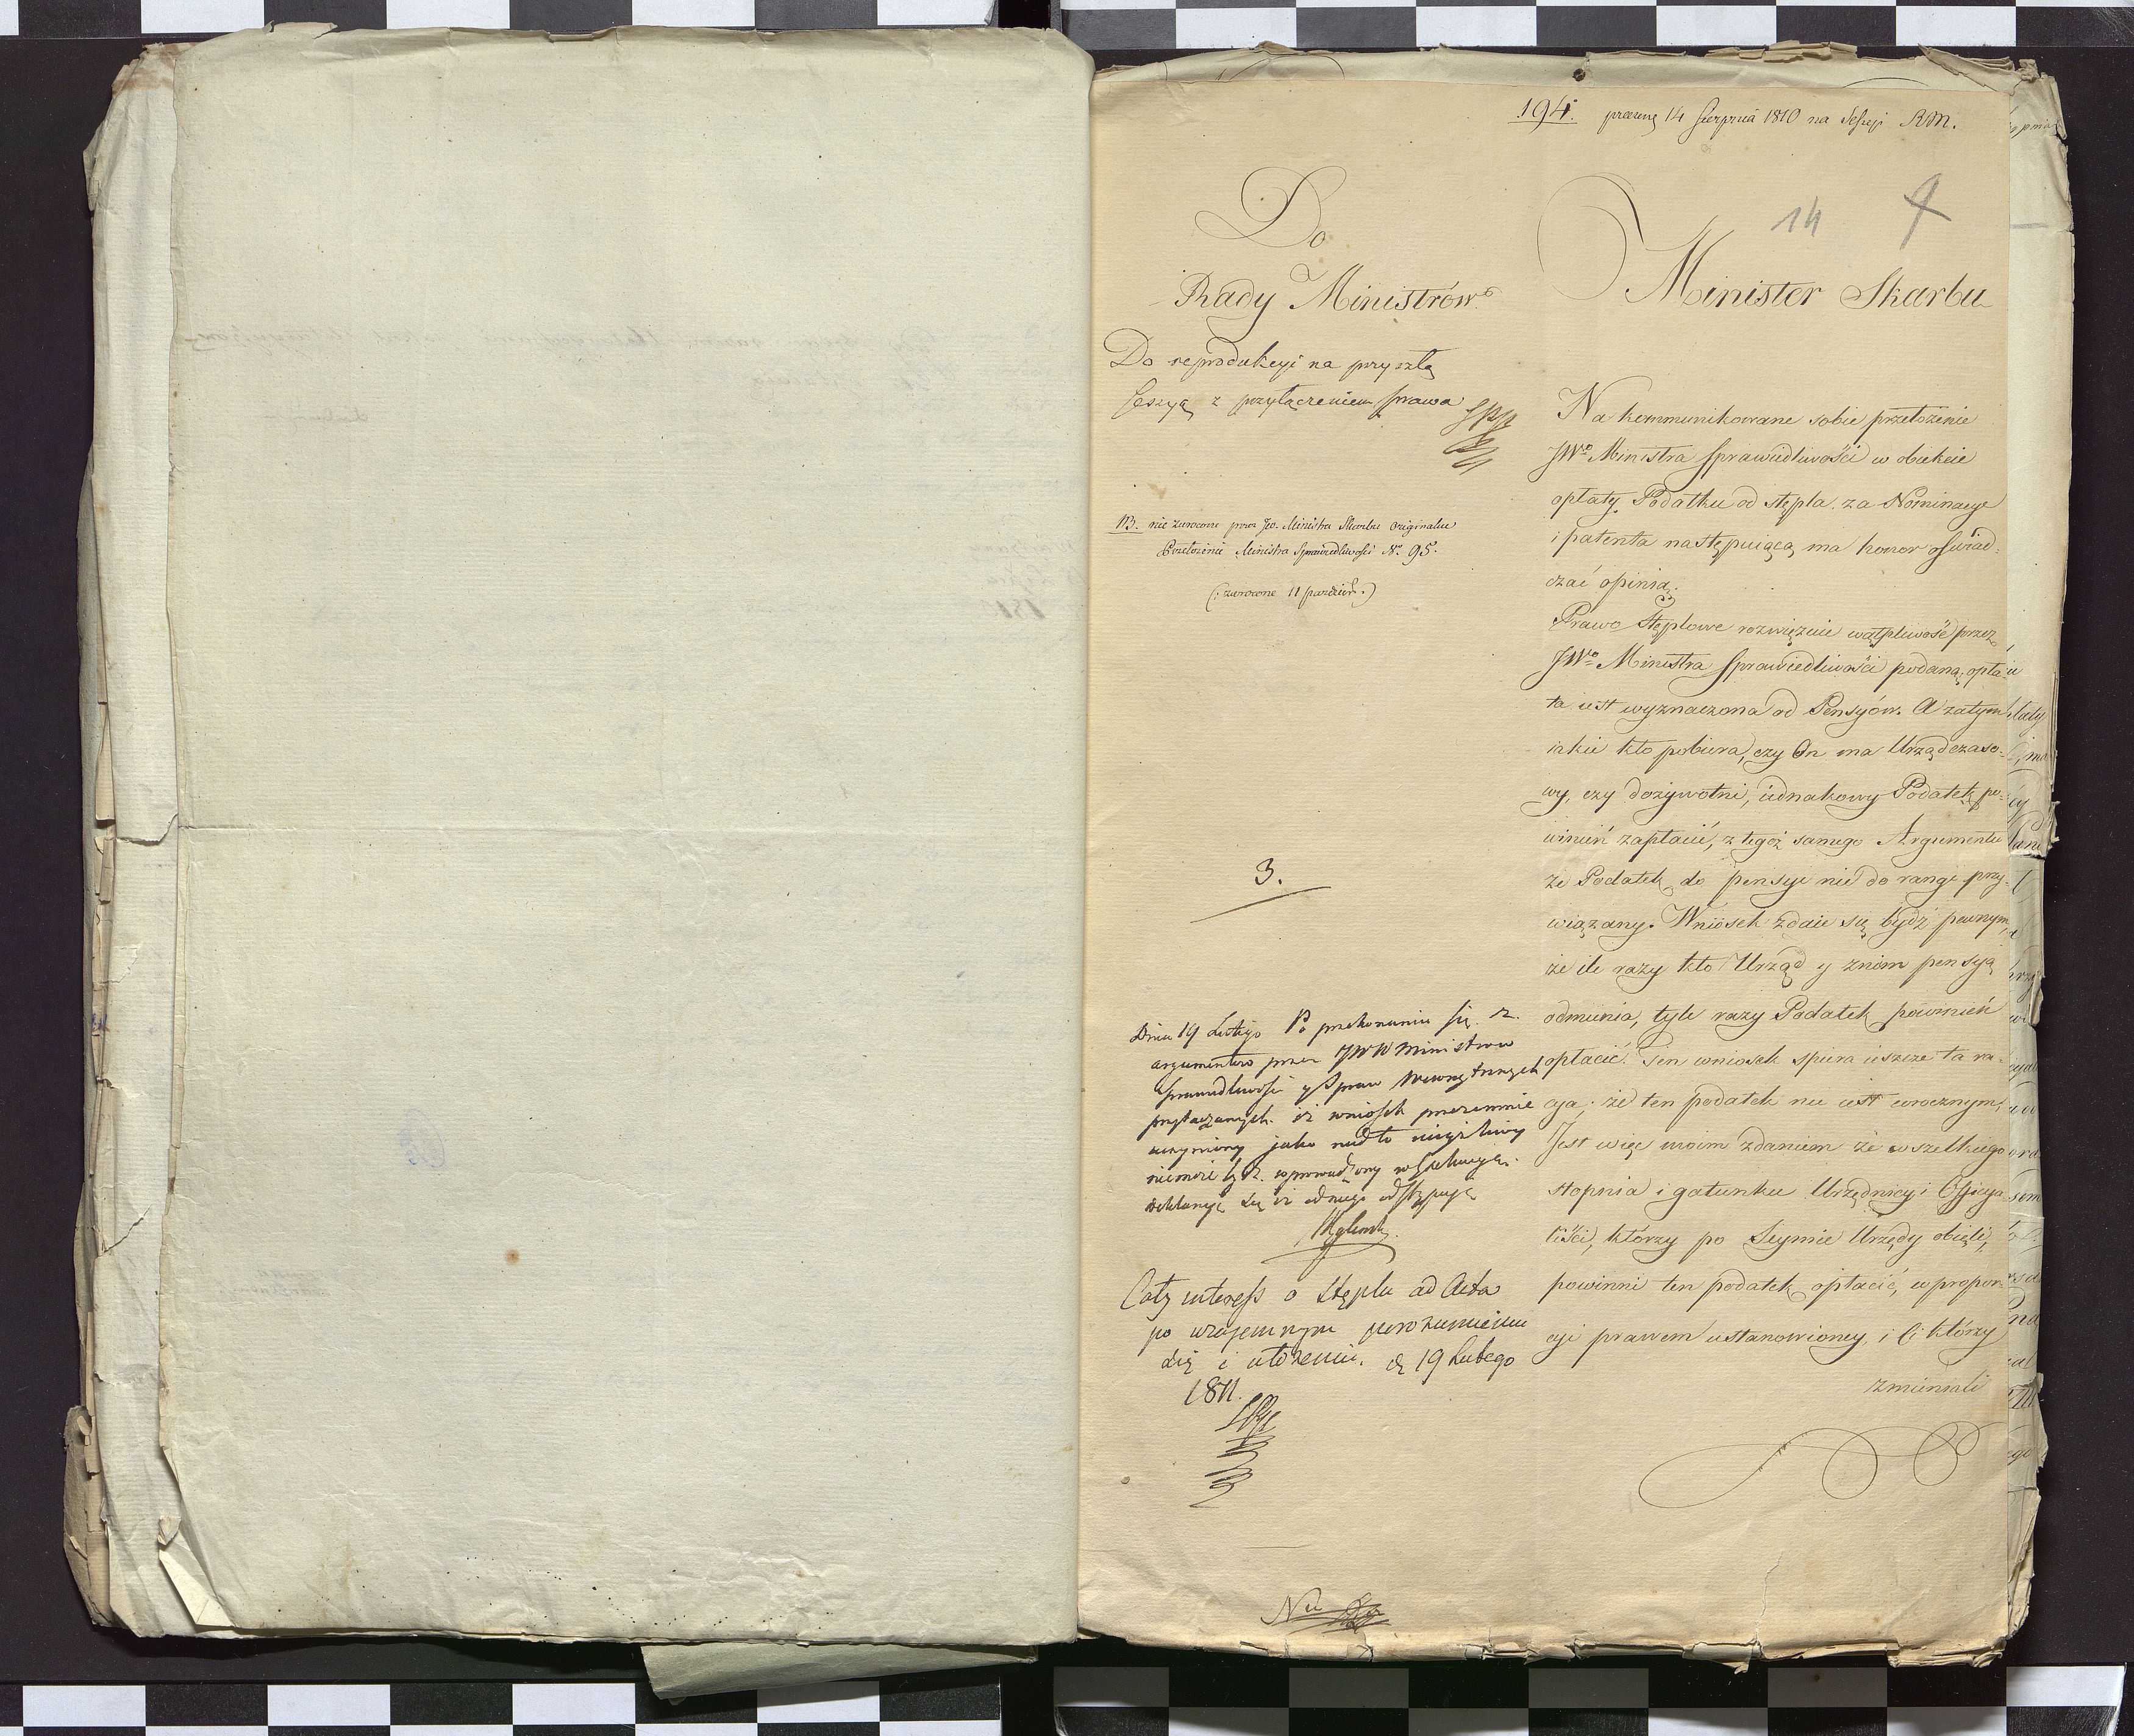 194. 14 Sierpnia 1810 na Sessyi RM.
14
Do
Rady Ministrów
Do reprodukcyi na przyszłą
Sessyą z przyłączeniem prawa
NB. nie zwrócone przez Jw. Ministra Skarbu originalne
Przełożenie Ministra Sprawiedliwości Nº. 95.
(: zwrocone 11 paździer. :)
3.
Dnia 19 Lutego Po przekonaniu się z
argumentow przez JWW Ministrow
Sprawiedliwości y Spraw Wewnętrznych
przytaczanych iż wniosek przezemnie
uczyniony jako nadto uciążliwy
niemoże bydz wprowadzony w Exekucyą
deklaruję się iż od niego odstępuję
Całz interess o Stęplu ad Acta
po wzajemnym porozumieniu
się i ułożeniu. d. 19 Lutego
1811.
Minister Skarbu
Na kommunikowane sobie przełożenie
JWº Ministra Sprawiedliwości w obiekcie
opłaty Podatku od stępla za Nominacye
i patenta następuiącą ma honor oświad-
czać opinią.
Prawo Stęplowe rozwięzuie wątpliwość przez
JWº Ministra Sprawiedliwości podaną, opła-
ta iest wyznaczona od Pensyów. A zatym
iakie kto pobiera, czy On ma Urząd czaso-
wy, czy dożywotni, iednakowy Podatek po-
winień zapłacić, z tegoż samego Argumentu
że Podatek do pensyi nie do rangi przy-
wiązany. Wniosek zdaie się bydź pewnym,
że ile razy kto Urząd y znim pensyą
odmienia, tyle razy Podatek powinień
opłacić. Ten wniosek spiera ieszcze ta ra-
cya; że ten podatek nie iest corocznym,
Jest więc moim zdaniem że wszelkiego
stopnia i gatunku Urzędnicy i Officya-
liści, którzy po Seymie Urzędy obieli,
powinni ten podatek opłacić, w propor-
cyi prawem ustanowioney, i Ci którzy
zmieniali